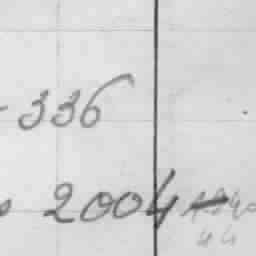 336
2004
44